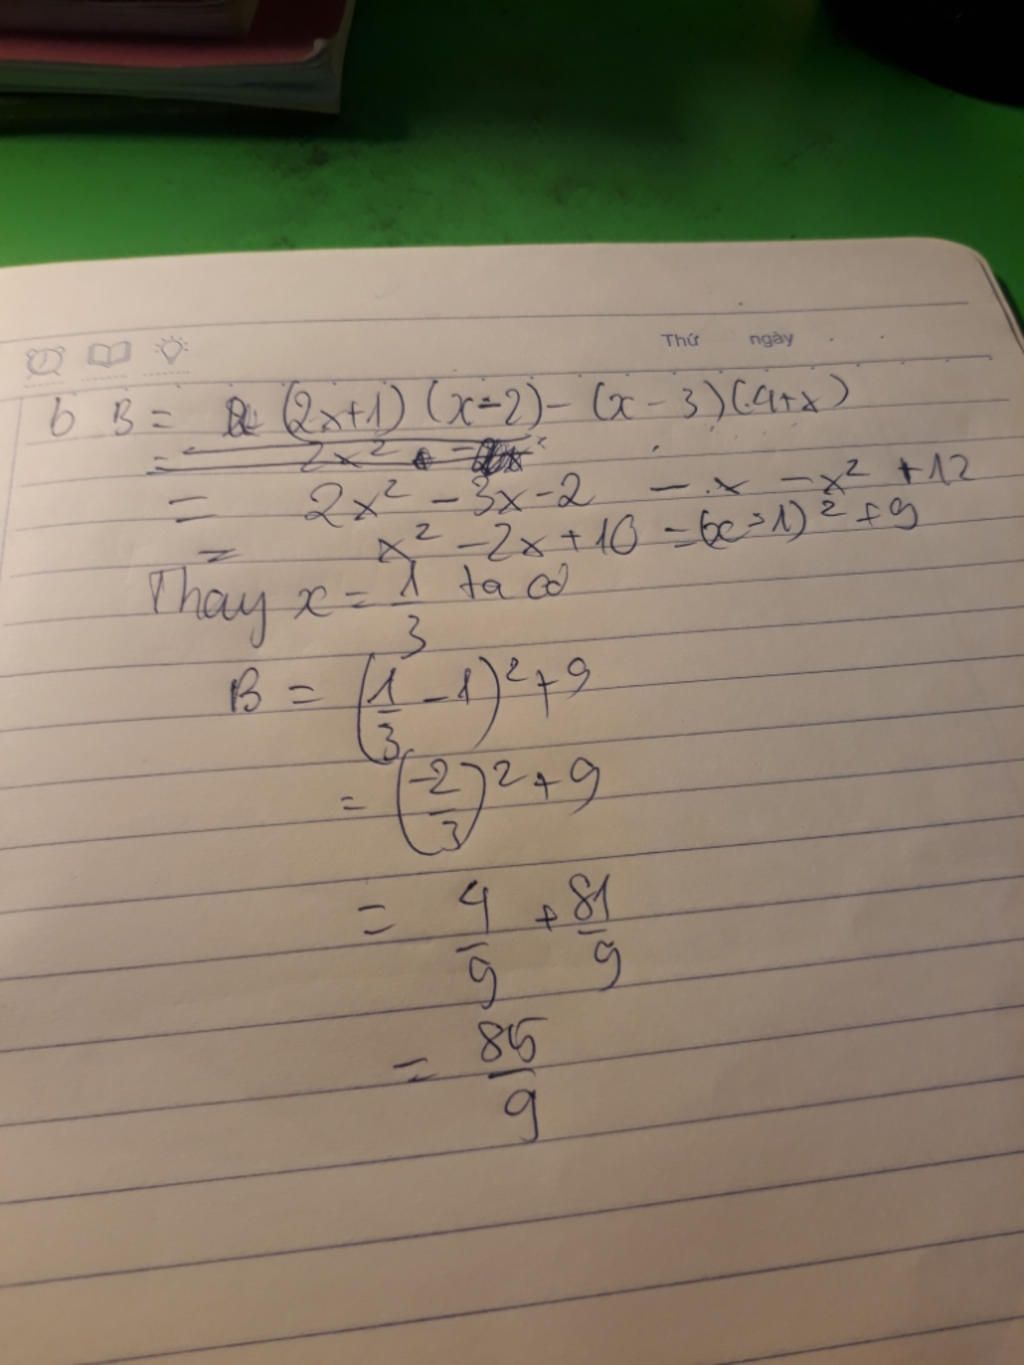 Thứ ngày
b B = (2x+1) (x-2) - (x - 3)(4+x)
= 2x²
= 2x² - 3x - 2 - x - x² + 12
= x² - 2x + 10 = (x-1)² + 9
Thay x = 1/3 ta có
B = (1/3 - 1)² + 9
= (-2/3)² + 9
= 4/9 + 81/9
= 85/9